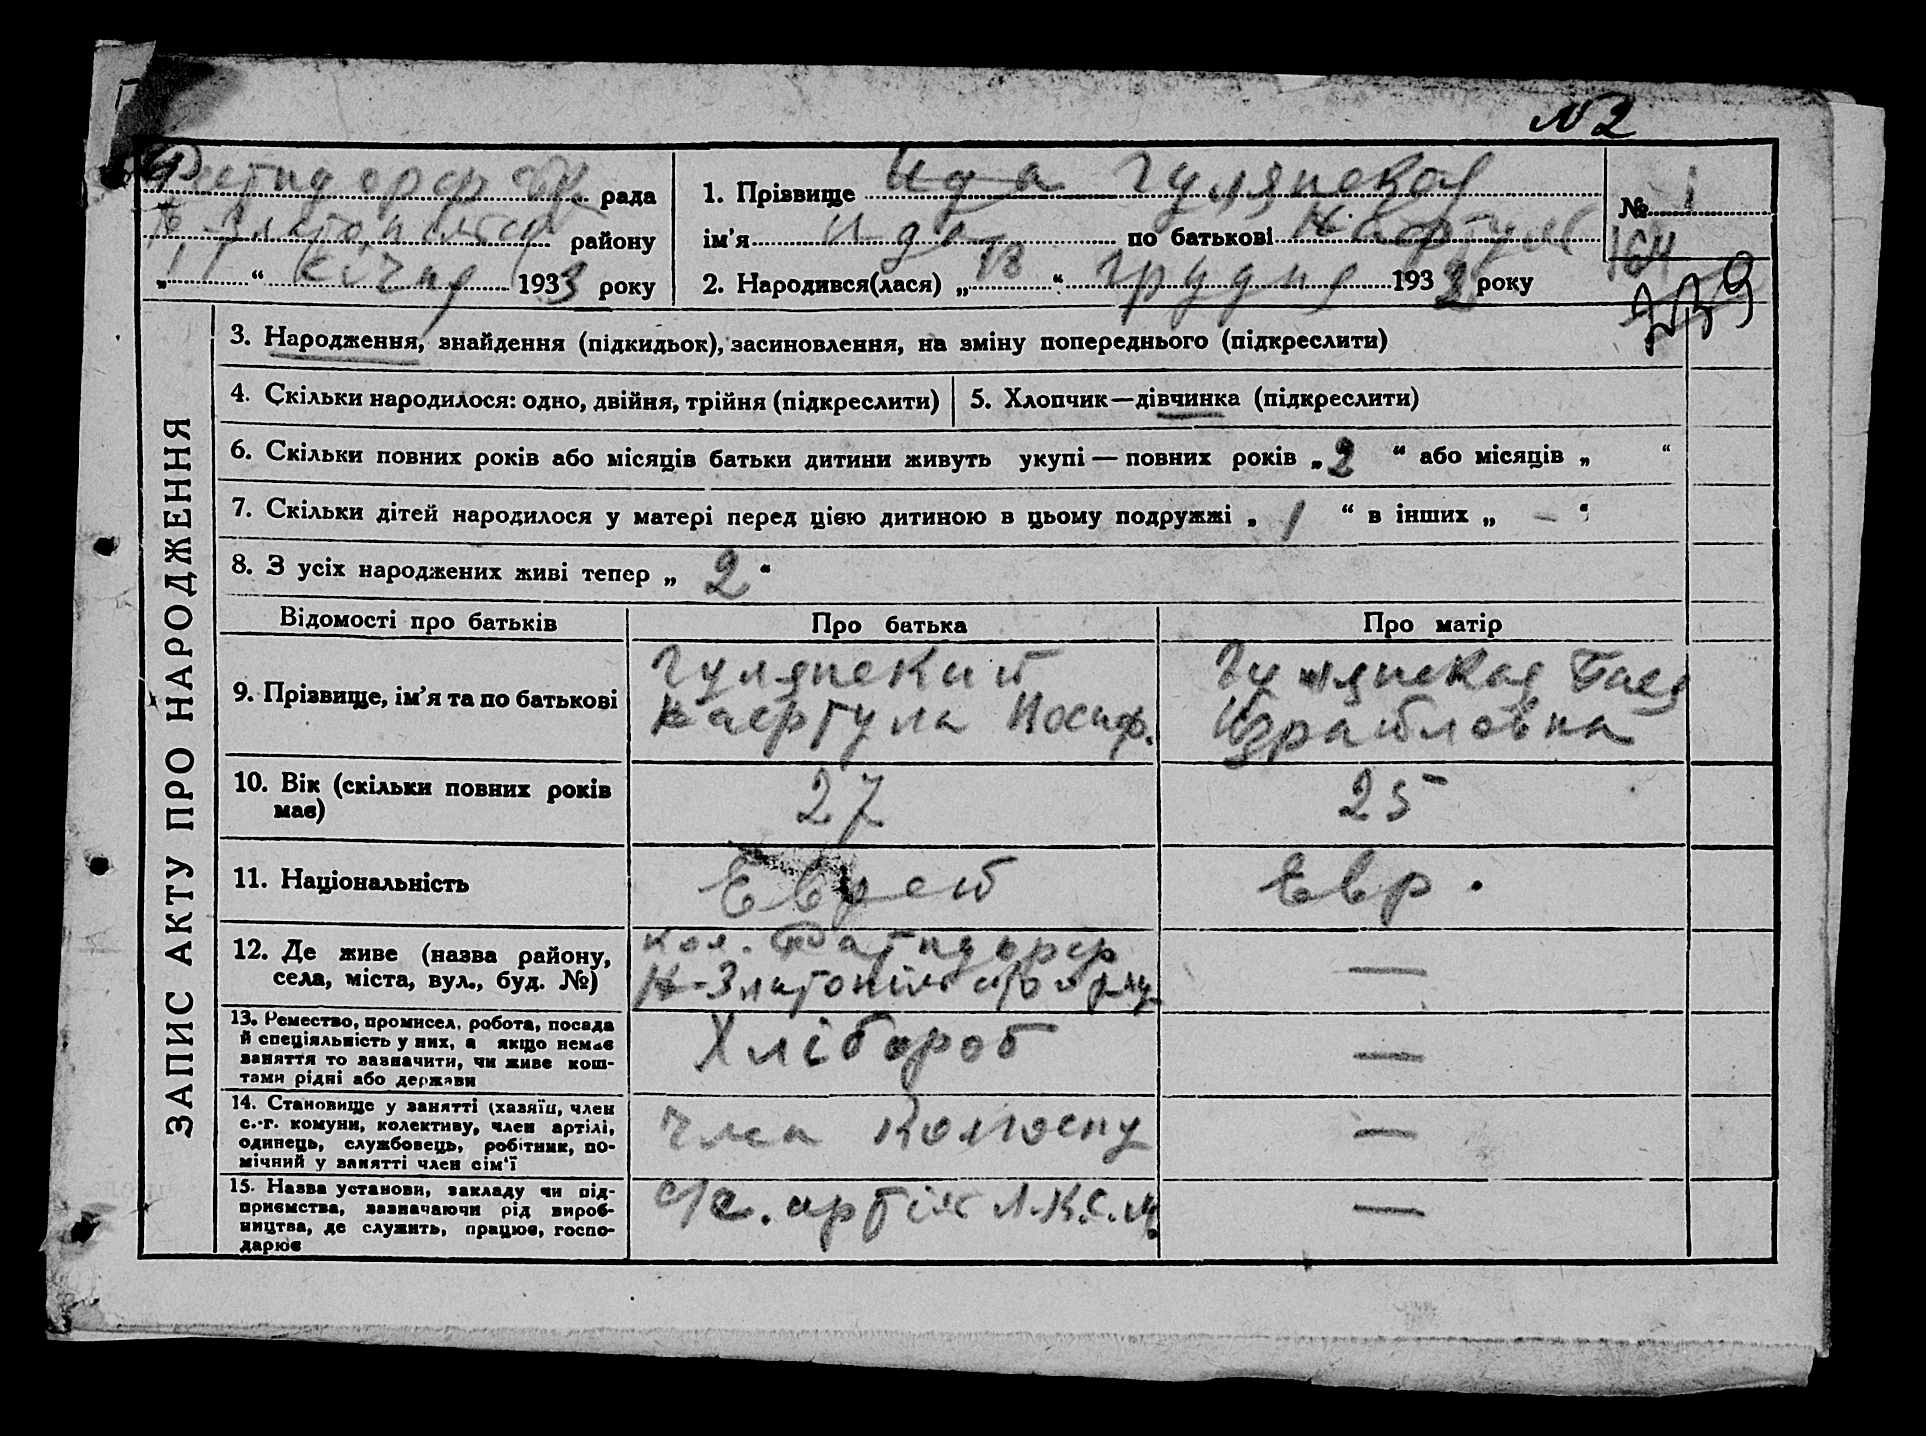 № 2
рада
району
" 11 " січня 1933 року
1. Прізвище Ида Гулянская
ім'я Ида по батькові
2. Народився(лася) „ 18 “ грудня 1932 року
№ 1
164
3. Народження, знайдення (підкидьок), засиновлення, на зміну попереднього (підкреслити)
4. Скільки народилося: одно, двійня, трійня (підкреслити)
5. Хлопчик—дівчинка (підкреслити)
6. Скільки повних років або місяців батьки дитини живуть укупі — повних років „ 2 “ або місяців „ “
7. Скільки дітей народилося у матері перед цією дитиною в цьому подружжі „ 1 “ в інших „ — “
8. З усіх народжених живі тепер „ 2 “
ЗАПИС АКТУ ПРО НАРОДЖЕННЯ
Відомості про батьків
Про батька
Про матір
9. Прізвище, ім'я та по батькові
Гулянский
Иосиф.
Гулянская Бася
Израйловна
10. Вік (скільки повних років
має)
27
25
11. Національність
Еврей
Евр.
12. Де живе (назва району,
села, міста, вул., буд. №)
кол.
Н-Златопільского р-ну
—
13. Ремество, промисел, робота, посада
й спеціяльність у них, а якщо немає
заняття то зазначити, чи живе кош-
тами рідні або держави
Хлібороб
—
14. Становище у занятті (хазяїн, член
с.-г. комуни, колективу, член артілі,
одинець, службовець, робітник, по-
мічний у занятті член сім'ї
Член Колгоспу
—
15. Назва установи, закладу чи під-
приємства, зазначаючи рід вироб-
ництва, де служить, працює, госпо-
дарює
с/г. артіль Л.К.С.М.
—